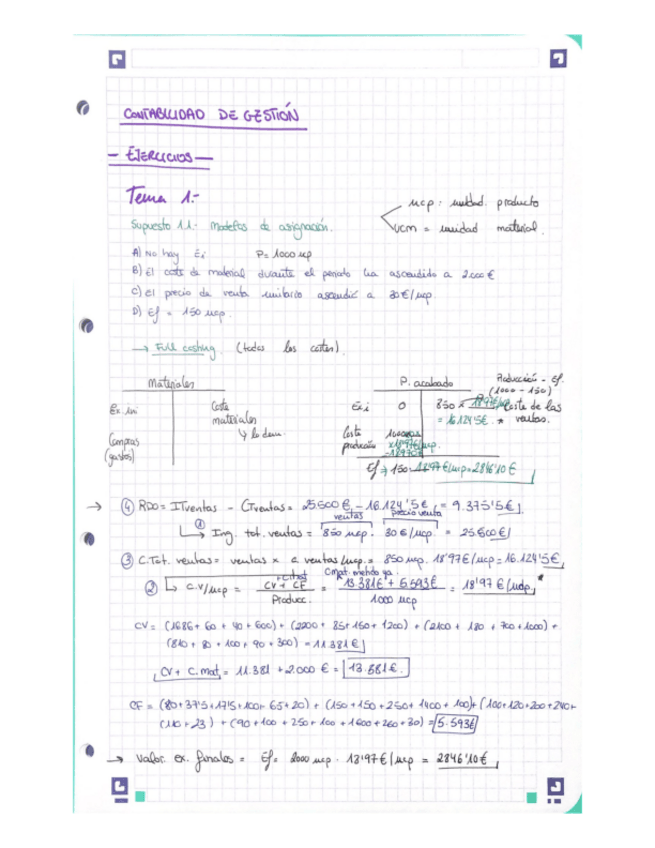 CONTABILIDAD DE GESTIÓN
- EJERCICIOS -
Tema 1.-
ucp: unidad. producto
ucm = unidad material.
Supuesto 1.1.- Modelos de asignación.
A) No hay Ei P= 1000 ucp
B) El coste de material durante el periodo ha ascendido a 2.000 €
C) El precio de venta unitario ascendió a 30 €/ucp.
D) Ef = 150 ucp.
→ Full costing. (todos los costes).
Materiales
Ex. ini
Compras (gastos)
Coste materiales
↳ lo dan.
P. acabado
Producción - Ef.
(1000 - 150)
Exi 0
850 x 18'97€/ucp
= 16.124'5€. *
Coste de las ventas.
Coste producción
x18'97€/ucp.
=18970€
Ef → 150 · 18'97 €/ucp = 2846'10 €
→ ④ RDO = ITventas - CTventas = 25.500 € - 16.124'5€ = 9.375'5€
ventas precio venta
① ↳ Ing. tot. ventas = 850 ucp. 30 €/ucp. = 25.500 €
③ C.Tot. ventas = ventas x c ventas/ucp. = 850 ucp. 18'97€/ucp = 16.124'5€
② ↳ c.v/ucp = CV + CF / Producc. = 13.381€ + 5.593€ / 1000 ucp = 18'97 €/udp *
+ C.mat
C.mat. metido ya.
CV = (1686 + 60 + 40 + 600) + (2200 + 85 + 150 + 1200) + (2100 + 180 + 700 + 1000) +
(810 + 80 + 100 + 90 + 300) = 11.381 €
CV + C.mat = 11.381 + 2.000 € = 13.381 €.
CF = (80 + 37'5 + 17'5 + 100 + 65 + 20) + (150 + 150 + 250 + 1400 + 100) + (100 + 120 + 200 + 240 +
(110 + 23) + (90 + 100 + 250 + 100 + 1600 + 260 + 30) = 5.593€
→ Valor. ex. finales = Ef = 2000 ucp · 18'97 €/ucp = 2846'10 €